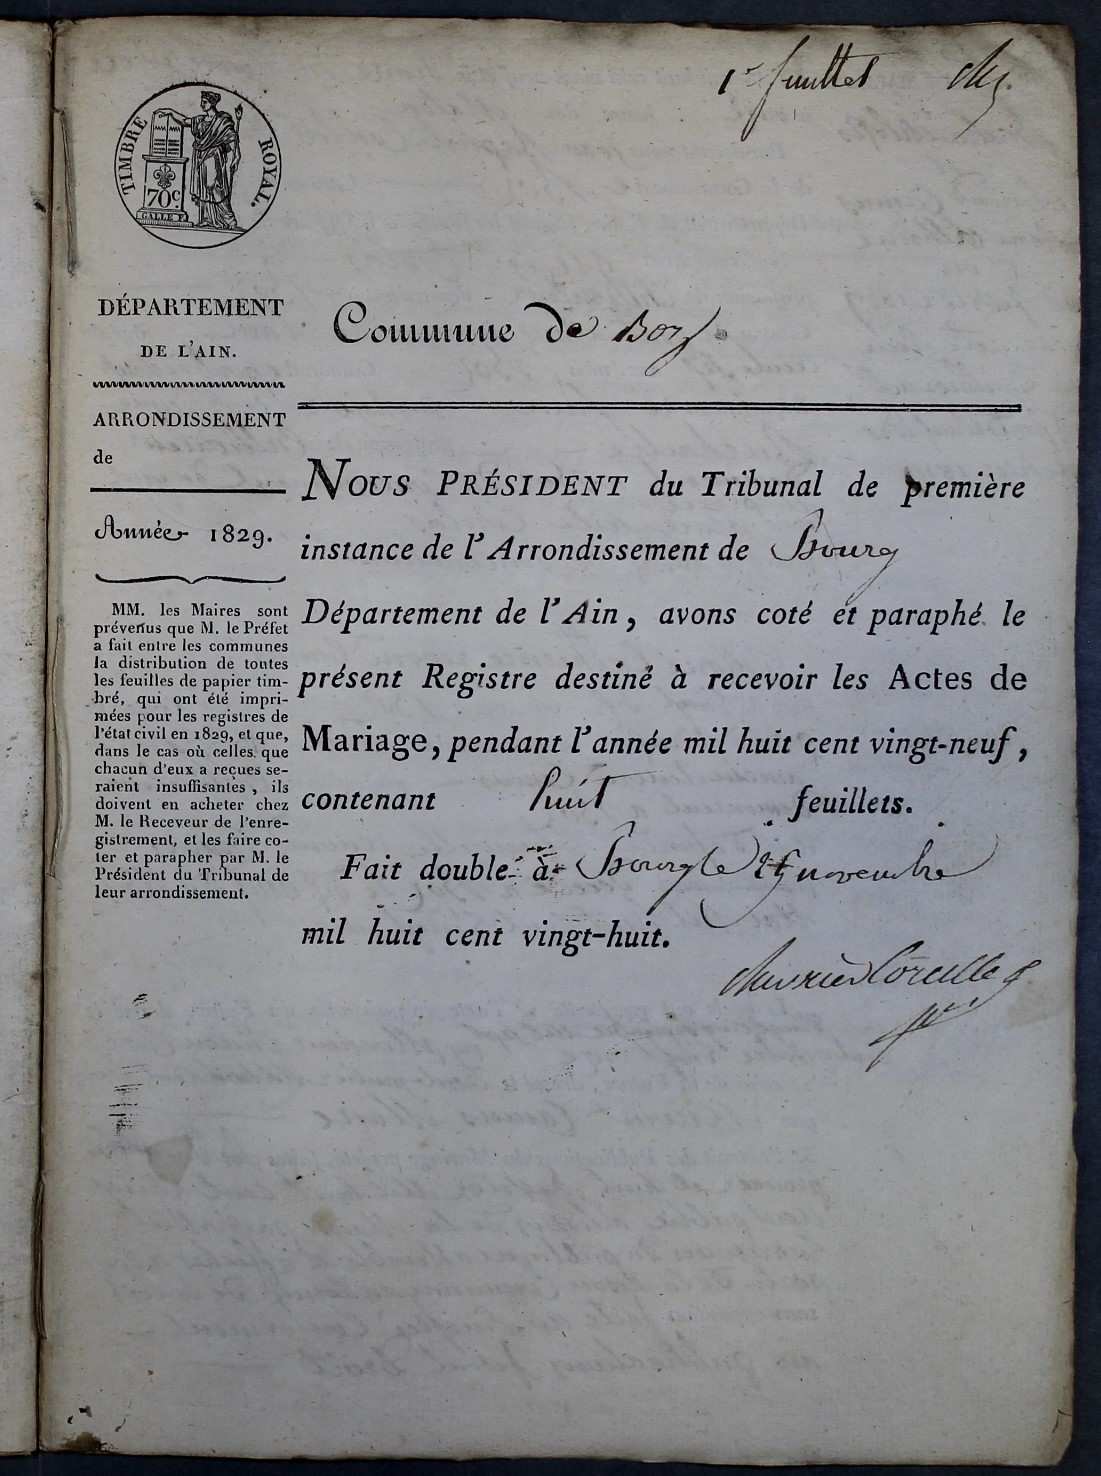 1er feuillet
TIMBRE ROYAL.
70c.
DÉPARTEMENT
DE L'AIN.
ARRONDISSEMENT
de
Année 1829.
MM. les Maires sont
prévenus que M. le Préfet
a fait entre les communes
la distribution de toutes
les feuilles de papier tim-
bré, qui ont été impri-
mées pour les registres de
l'état civil en 1829, et que,
dans le cas où celles que
chacun d'eux a reçues se-
raient insuffisantes, ils
doivent en acheter chez
M. le Receveur de l'enre-
gistrement, et les faire co-
ter et parapher par M. le
Président du Tribunal de
leur arrondissement.
Commune de Boz
NOUS PRÉSIDENT du Tribunal de première
instance de l'Arrondissement de Bourg
Département de l'Ain, avons coté et paraphé le
présent Registre destiné à recevoir les Actes de
Mariage, pendant l'année mil huit cent vingt-neuf,
contenant huit feuillets.
Fait double à Bourg le novembre
mil huit cent vingt-huit.